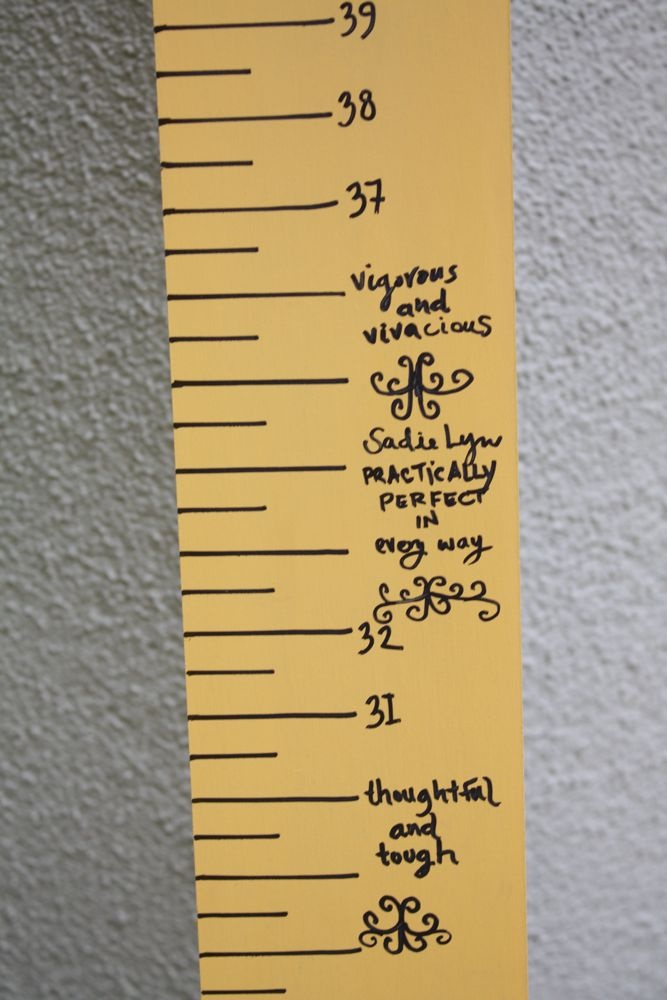 39
38
37
vigorous
and
vivacious
Sadie Lyn
PRACTiCALLY
PERFECT
IN
every way
32
31
thoughtful
and
tough